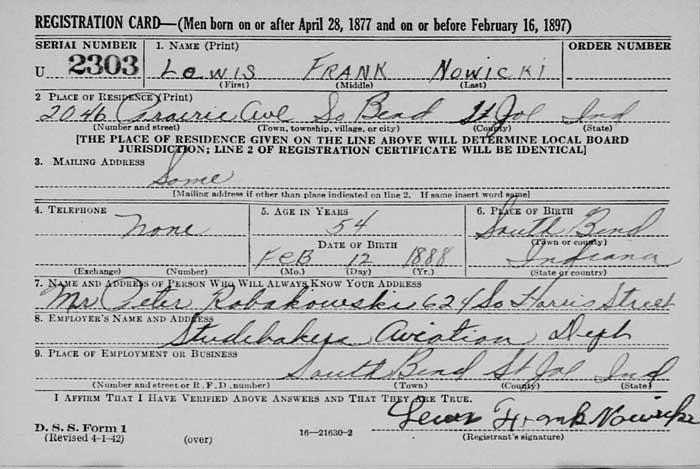 REGISTRATION CARD—(Men born on or after April 28, 1877 and on or before February 16, 1897)
SERIAL NUMBER 1. NAME (Print) ORDER NUMBER
U 2303 LOWIS FRANK NOWICKI
(First) (Middle) (Last)
2 PLACE OF RESIDENCE (Print)
2046 Prairie Ave So Bend St Joe Ind
(Number and street) (Town, township, village, or city) (County) (State)
[THE PLACE OF RESIDENCE GIVEN ON THE LINE ABOVE WILL DETERMINE LOCAL BOARD
JURISDICTION; LINE 2 OF REGISTRATION CERTIFICATE WILL BE IDENTICAL]
3. MAILING ADDRESS
Same
[Mailing address if other than place indicated on line 2. If same insert word same]
4. TELEPHONE 5. AGE IN YEARS 6. PLACE OF BIRTH
None 54 South Bend
DATE OF BIRTH (Town or county)
FEB 12 1888 Indiana
(Exchange) (Number) (Mo.) (Day) (Yr.) (State or country)
7. NAME AND ADDRESS OF PERSON WHO WILL ALWAYS KNOW YOUR ADDRESS
Mr Peter Robakowski 624 So Harris Street
8. EMPLOYER'S NAME AND ADDRESS
Studebakers Aviation Dept
9. PLACE OF EMPLOYMENT OR BUSINESS
South Bend St Joe Ind
(Number and street or R. F. D. number) (Town) (County) (State)
I AFFIRM THAT I HAVE VERIFIED ABOVE ANSWERS AND THAT THEY ARE TRUE.
Frank Nowicki
D. S. S. Form 1
(Revised 4-1-42) (over) 16—21630-2 (Registrant's signature)